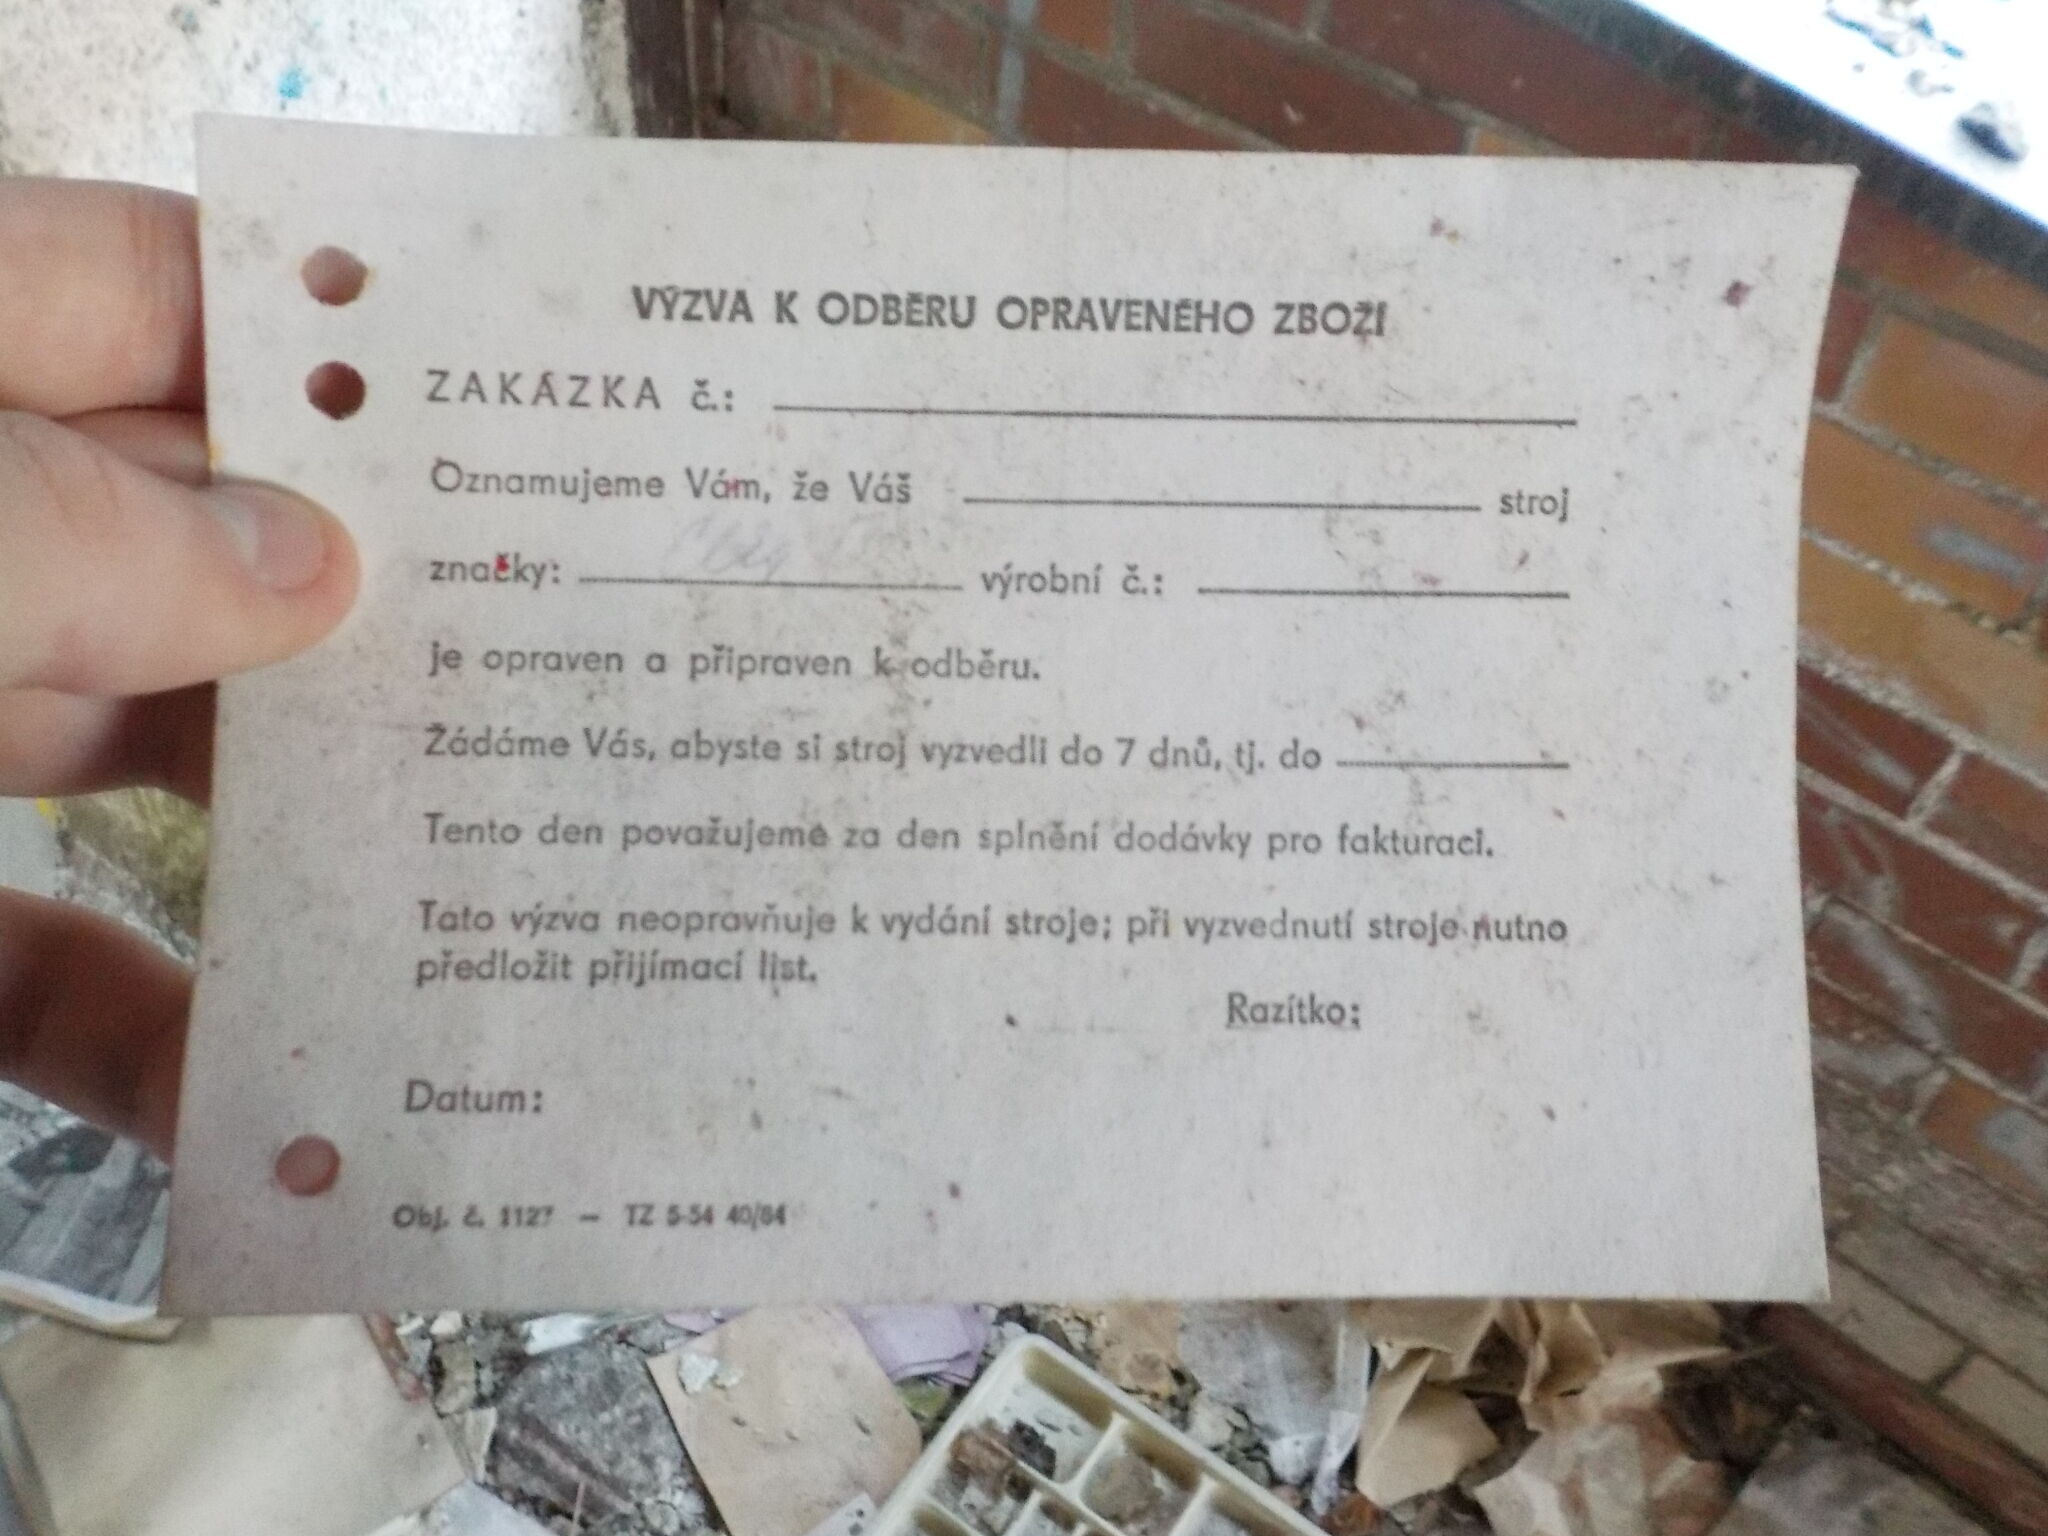 VÝZVA K ODBĚRU OPRAVENÉHO ZBOŽÍ
ZAKÁZKA č.:
Oznamujeme Vám, že Váš stroj
značky: výrobní č.:
je opraven a připraven k odběru.
Žádáme Vás, abyste si stroj vyzvedli do 7 dnů, tj. do
Tento den považujeme za den splnění dodávky pro fakturaci.
Tato výzva neopravňuje k vydání stroje; při vyzvednutí stroje nutno
předložit přijímací list.
Razítko:
Datum:
Obj. č. 1127 — TZ 5-54 40/84